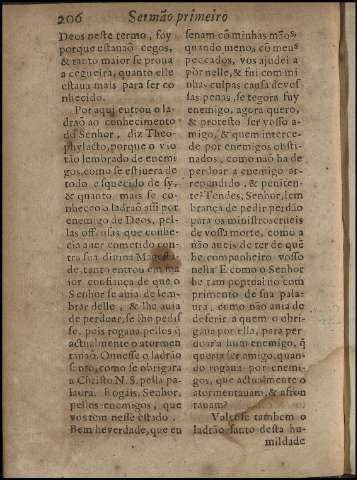 206 Sermão primeiro
Deos neste termo, foy
porque estauaõ cegos,
& tanto maior se proua
a cegueira, quanto elle
estaua mais para ser co
nhecido.
Por aqui entrou o la-
draõ ao conhecimento
do Senhor, diz Theo-
phylacto, porque o vio
taõ lembrado de enemi
gos, como se estiuera de
todo esquecido de sy,
& quanto mais se co-
nheceo o ladraõ assi por
enemigo de Deos, pel-
las offensas que conhe-
cia auer cometido con-
tra sua diuina Magesta-
de, tanto entrou em ma
ior confiança de que o
Senhor se auia de lem-
brar delle, & lhe auia
de perdoar, se lho pedis
se, pois rogaua pellos q̃
actualmente o atormen
tauaõ. Ouuesse o ladraõ
se naõ, como se obrigara
a Christo N. S. pella pa-
laura. Rogais, Senhor,
pellos enemigos, que
vos tem nesse estado.
Bem he verdade, que eu
senam cõ minhas mãos,
quando menos cõ meus
peccados, vos ajudei a
pòr nelle, & fui com mi
nhas culpas causa de vos
sas penas, se tegora fuy
enemigo, agora quero,
& protesto ser vosso a-
migo, & quem interce-
de por enemigos obsti-
nados, como não ha de
perdoar a enemigo ar-
rependido, & peniten-
te? Tendes, Senhor, lem
brança de pedir perdão
para os ministros crueis
de vossa morte, como a
não aueis de ter de quẽ
he companheiro vosso
nella? E como o Senhor
he tam pontual no com
primento de sua pala-
ura, como não auia de
deferir a quem o obri-
gaua por ella, para per
doar a hum enemigo, q̃
queria ser amigo, quan-
do rogaua por enemi-
gos, que actualmente o
atormentauam, & afron
tauam?
Valeose tambem o
ladrão santo desta hu-
mildade